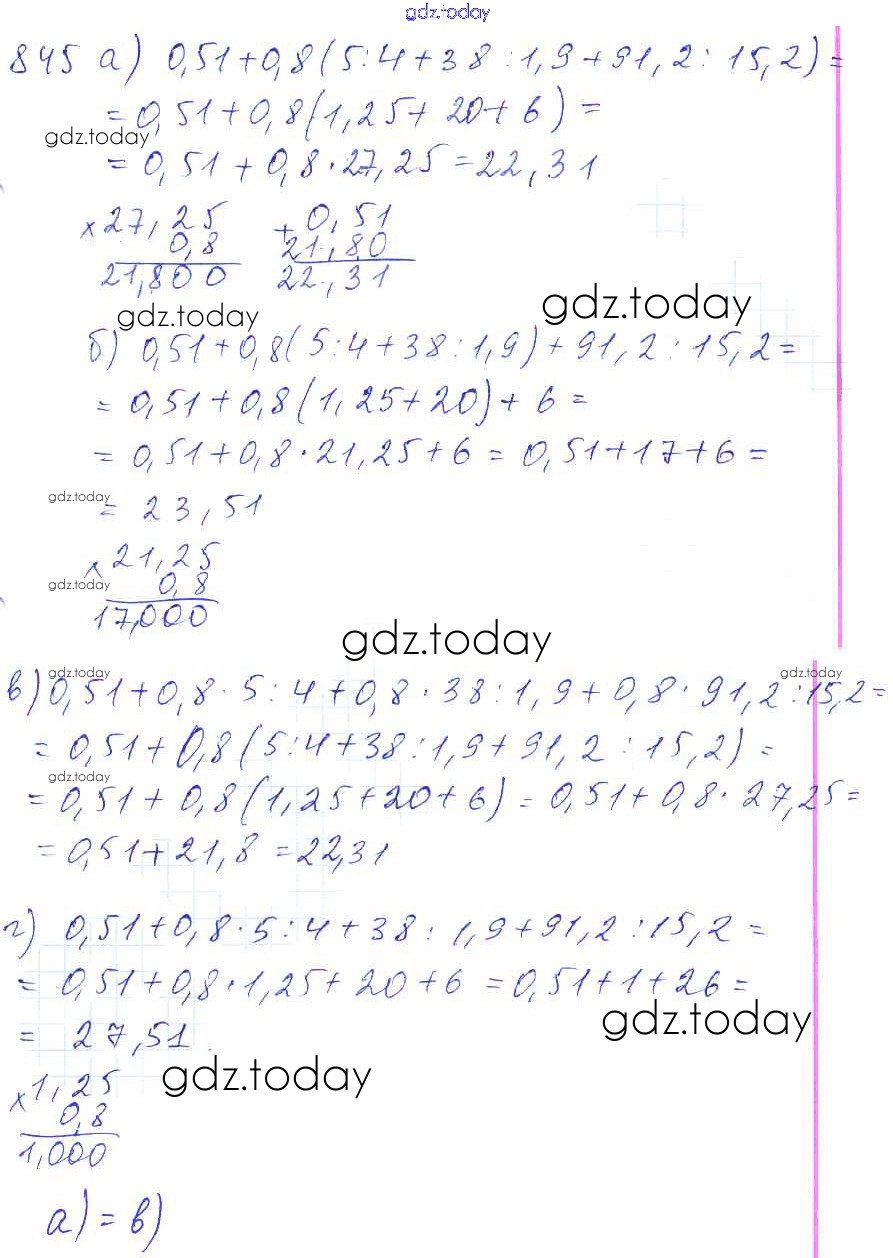 gdz.today
845 а) 0,51+0,8(5:4+38:1,9+91,2:15,2)=
=0,51+0,8(1,25+20+6)=
gdz.today
=0,51+0,8·27,25=22,31
×27,25 +0,51
0,8 21,80
21,800 22,31
gdz.today
gdz.today
б) 0,51+0,8(5:4+38:1,9)+91,2:15,2=
=0,51+0,8(1,25+20)+6=
=0,51+0,8·21,25+6=0,51+17+6=
gdz.today
=23,51
×21,25
gdz.today 0,8
17,000
gdz.today
gdz.today gdz.today
в) 0,51+0,8·5:4+0,8·38:1,9+0,8·91,2:15,2=
=0,51+0,8(5:4+38:1,9+91,2:15,2)=
gdz.today
=0,51+0,8(1,25+20+6)=0,51+0,8·27,25=
=0,51+21,8=22,31
г) 0,51+0,8·5:4+38:1,9+91,2:15,2=
=0,51+0,8·1,25+20+6=0,51+1+26=
gdz.today
=27,51
gdz.today
×1,25
0,8
1,000
а)=в)